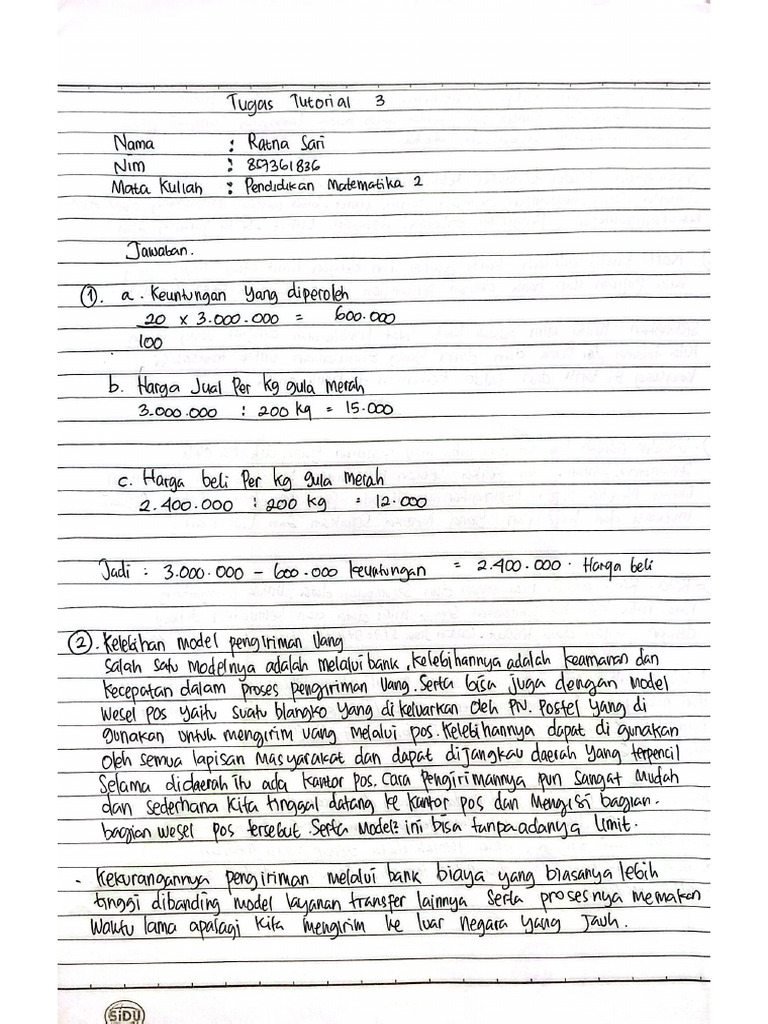 Tugas Tutorial 3
Nama : Ratna Sari
Nim : 859361836
Mata Kuliah : Pendidikan Matematika 2
Jawaban.
①. a. Keuntungan yang diperoleh
20 x 3.000.000 = 600.000
100
b. Harga Jual Per kg gula merah
3.000.000 : 200 kg = 15.000
c. Harga beli Per kg gula merah
2.400.000 : 200 kg = 12.000
Jadi : 3.000.000 - 600.000 keuntungan = 2.400.000. Harga beli
②. Kelebihan model pengiriman Uang
salah satu modelnya adalah melalui bank, kelebihannya adalah keamanan dan
kecepatan dalam proses pengiriman Uang. Serta bisa juga dengan model
wesel pos yaitu suatu blangko yang di keluarkan oleh PN. Postel yang di
gunakan untuk mengirim uang melalui pos. Kelebihannya dapat di gunakan
oleh semua lapisan masyarakat dan dapat dijangkau daerah yang terpencil
Selama didaerah itu ada kantor pos. Cara pengirimannya pun sangat mudah
dan sederhana kita tinggal datang ke kantor pos dan mengisi bagian.
bagian wesel pos tersebut. Serta model² ini bisa tanpa adanya limit.
- Kekurangannya pengiriman melalui bank biaya yang biasanya lebih
tinggi dibanding model layanan transfer lainnya serta prosesnya memakan
waktu lama apalagi kita mengirim ke luar negara yang jauh.
SiDU